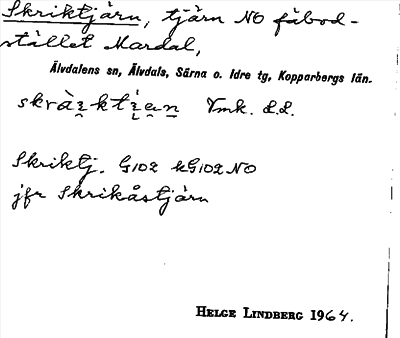 Skriktjärn, tjärn NO fäbod-
stället Mardal,
Älvdalens sn, Älvdals, Särna o. Idre tg, Kopparbergs län.
Vmk. L.L.
Skriktj. G102 kG102 NO
jfr Skrikåstjärn
HELGE LINDBERG 1964.